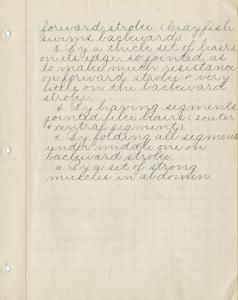 forward stroke. (Crayfish
swims backward)
3. By a thick set of hairs
on its edge, so pointed as
to make much resistance
on forward stroke & very
little on the backward
stroke.
4. By having segments
pointed like hairs (2 outer
& central segment).
5. By folding all segments
under middle one on
backward stroke.
6. By a set of strong
muscles in abdomen.